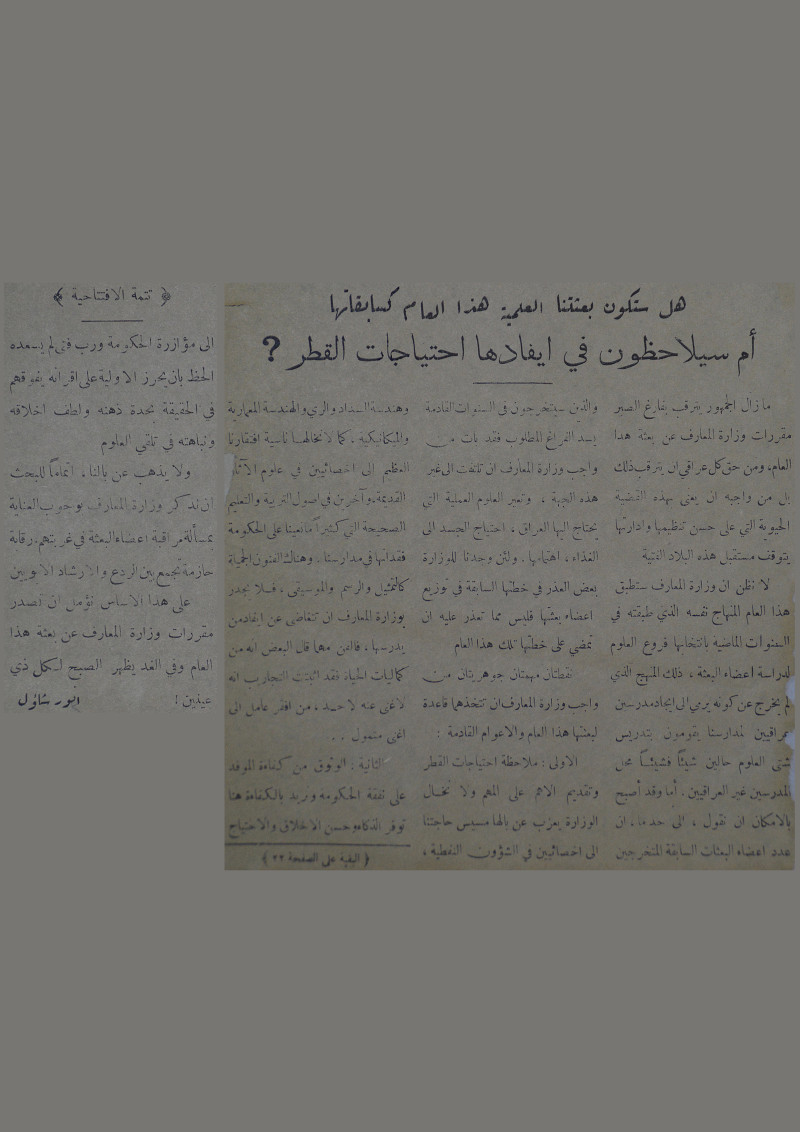 هل ستكون بعثتنا العلمية هذا العام كسابقاتها
أم سيلاحظون في ايفادها احتياجات القطر ؟
ما زال الجمهور يترقب بفارغ الصبر
مقررات وزارة المعارف عن بعثة هذا
العام، ومن حق كل عراقي ان يترقب ذلك
بل من واجبه ان يعنى بهذه القضية
الحيوية التي على حسن تنظيمها وادارتها
يتوقف مستقبل هذه البلاد الفنية
لا نظن ان وزارة المعارف ستطبق
هذا العام المنهاج نفسه الذي طبقته في
السنوات الماضية بانتخابها فروع العلوم
لدراسة اعضاء البعثة ، ذلك المنهج الذي
لم يخرج عن كونه يرمي الى ايجاد مدرسين
عراقيين لمدارسنا يقومون بتدريس
شتى العلوم حالين شيئاً فشيئاً محل
المدرسين غير العراقيين . أما وقد أصبح
بالامكان ان نقول ، الى حد ما ، ان
عدد اعضاء البعثات السابقة المتخرجين
والذين سيتخرجون في السنوات القادمة
يسد الفراغ المطلوب فقد بات من
واجب وزارة المعارف ان تلتفت الى غير
هذه الجهة ، وتعير العلوم العملية التي
يحتاج اليها العراق ، احتياج الجسد الى
الغذاء ، اهتمامها . ولئن وجدنا للوزارة
بعض العذر في خطتها السابقة في توزيع
اعضاء بعثتها فليس مما تعذر عليه ان
تمضي على خطتها تلك هذا العام
نقطتان مهمتان جوهريتان من
واجب وزارة المعارف ان تتخذها قاعدة
لبعثتها هذا العام والاعوام القادمة :
الاولى : ملاحظة احتياجات القطر
وتقديم الاهم على المهم ولا نخال
الوزارة يعزب عن بالها مسيس حاجتنا
الى اخصائيين في الشؤون النفطية ،
وهندسة السداد والري والهندسة المعمارية
والميكانيكية ، كما لا نخالها ناسية افتقارنا
العظيم الى اخصائيين في علوم الآثار
القديمة، وآخرين في اصول التربية والتعليم
الصحيحة التي كثيراً ما نعينا على الحكومة
فقدانها في مدارسنا . وهناك الفنون الجميلة
كالتمثيل والرسم والموسيقى ، فلا يجدر
بوزارة المعارف ان تتغاضى عن ايفاد من
يدرسها ، فالفن مهما قال البعض انه من
كماليات الحياة فقد اثبتت التجارب انه
لا غنى عنه لاحد ، من افقر عامل الى
اغنى متمول . .
الثانية : الوثوق من كفاءة الموفد
على نفقة الحكومة ونريد بالكفاءة هنا
توفر الذكاء وحسن الاخلاق والاحتياج
( البقية على الصفحة ٢٢ )
﴿ تتمة الافتتاحية ﴾
الى مؤازرة الحكومة ورب فتى لم يسعده
الحظ بان يحرز الاولية على اقرانه يفوقهم
في الحقيقة بحدة ذهنه ولطف اخلاقه
ونباهته في تلقي العلوم
ولا يذهب عن بالنا ، اتماماً للبحث
ان نذكر وزارة المعارف بوجوب العناية
بمسألة مراقبة اعضاء البعثة في غربتهم، رقابة
حازمة تجمع بين الردع والارشاد الابويين
على هذا الاساس نؤمل ان تصدر
مقررات وزارة المعارف عن بعثة هذا
العام وفي الغد يظهر الصبح لكل ذي
عينين !
انور شاؤل